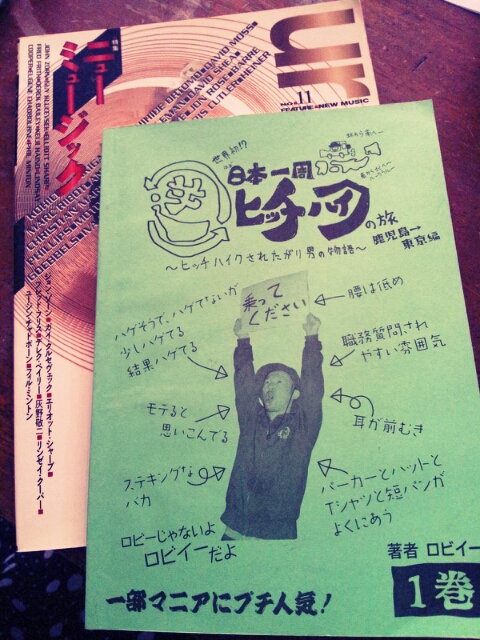 ur
NO.11
FEATURE●NEW MUSIC
特集
ニュー
ミュージック
ジョン・ゾーン■ガイ・クルセヴェック■エリオット・シャープ■
フレッド・フリス■デレク・ベイリー■灰野敬二■リンゼイ・クーパー■
ユージン・チャドボーン■フィル・ミントン
世界初!?
日本一周
逆
ヒッチハイク
の旅
鹿児島→
東京編
〜ヒッチハイクされたがり男の物語〜
乗って
ください
ハゲそうで、ハゲてないが
少しハゲてる
結果ハゲてる
モテると
思いこんでる
ステキングな
バカ
ロビーじゃないよ
ロビイーだよ
腰は低め
職務質問され
やすい雰囲気
耳が前むき
パーカーとハットと
Tシャツと短パンが
よくにあう
著者 ロビイー
1巻
一部マニアにプチ人気!